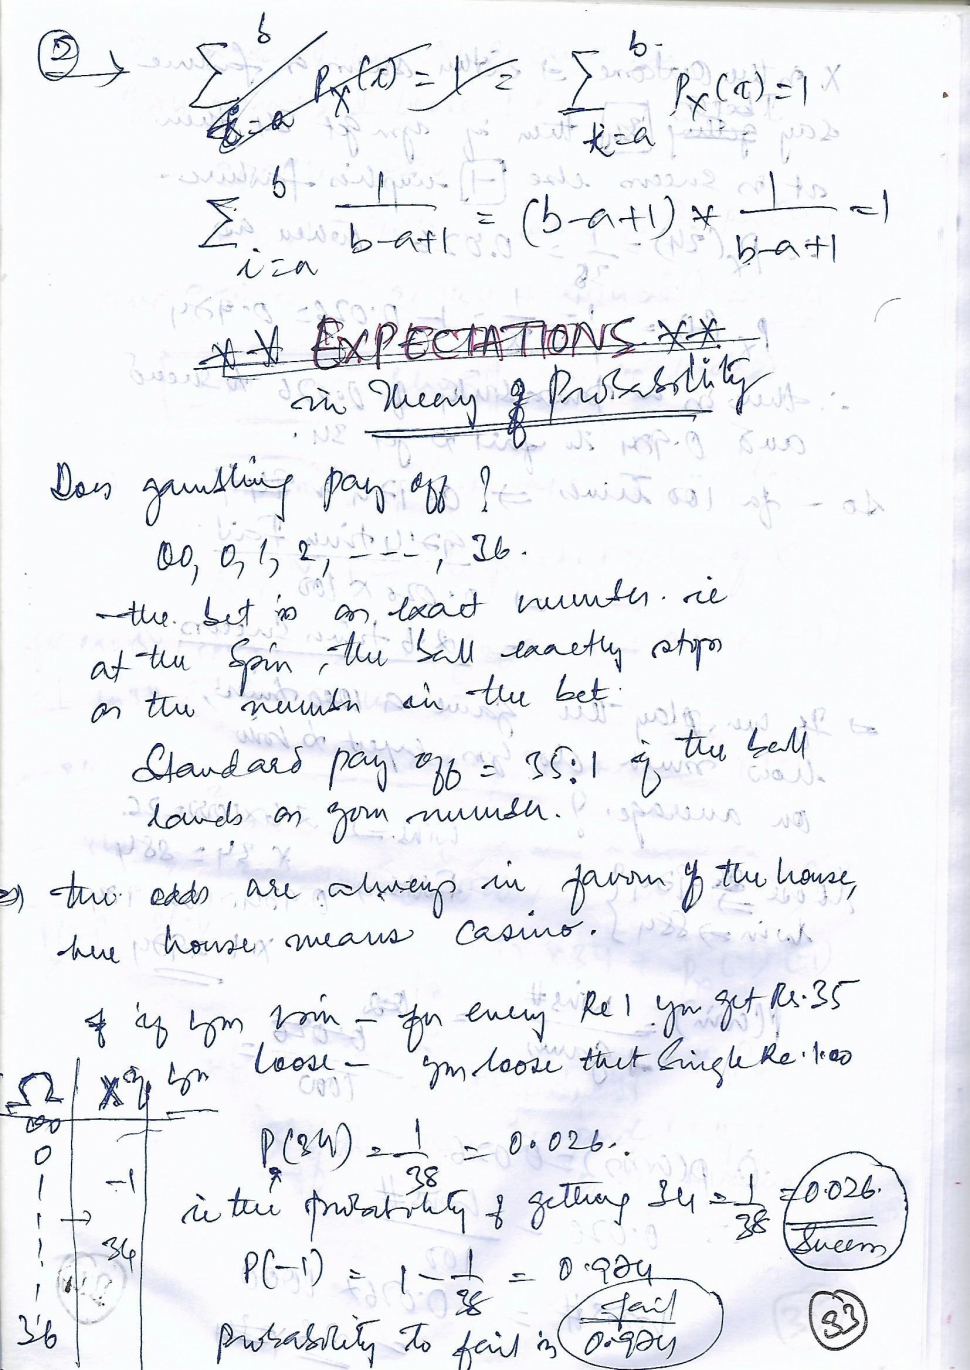 ② → ∑ b i=a P_X(x) = 1 = ∑ b x=a P_X(x) = 1
∑ b i=a 1/(b-a+1) = (b-a+1) * 1/(b-a+1) = 1
** EXPECTATIONS **
in Theory of Probability
Does gambling pay off?
00, 0, 1, 2, ---, 36.
the bet is on exact number. ie
at the spin, the ball exactly stops
on the number in the bet.
Standard pay off = 35:1 if the ball
lands on your number.
⇒) the odds are always in favour of the house,
here house means casino.
if you win – for every Re 1 you get Rs. 35
if you loose – you loose that single Re. 1.00
Ω X
00
0
1 -1
1 →
1 34
1
1
36
P(34) = 1/38 = 0.026.
ie the probability of getting 34 = 1/38 = 0.026. Success
P(-1) = 1 - 1/38 = 0.974
probability to fail is fail 0.974
33